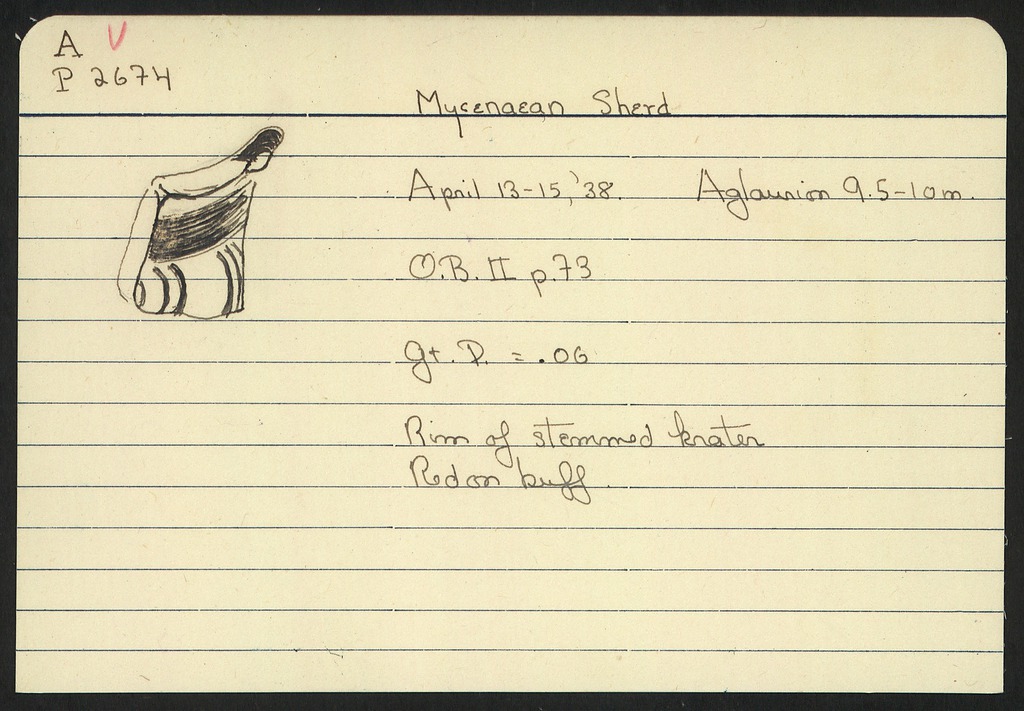 A V
P 2674
Mycenaean Sherd
April 13-15, '38. Aglaurion 9.5-10m.
O.B. II p.73
gt. D. = .06
Rim of stemmed krater
Red on buff.